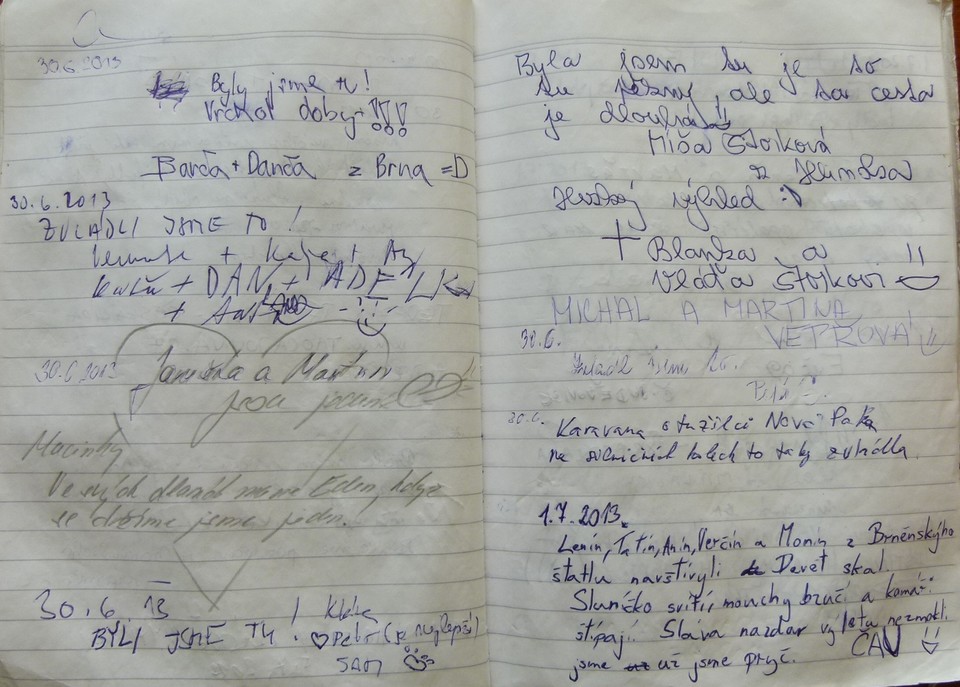 30.6.2013
Byly jsme tu!
Vrchol dobyt!!!
Barča + Danča z Brna =D
30.6.2013
ZVLÁDLI JSME TO!
+ DAN + ADÉLKA
+
30.6.2013 a Martin
jsou
Ve svých dlaních máme Eden, když
se držíme jsme jeden.
30.6.13
BYLI JSME TU! Klára
♡ Petr (je nejlepší)
SAM
Byla jsem tu je to
tu pěkný, ale ta cesta
je dlouhá
Míša Štoiková
z Humbla
Hezký výhled :)
+ Blanka a
Vláďa Štoikovi
MICHAL A MARTINA
VETROVÁ
30.6.
Zvládli jsme to.
30.6.
Karavana otužilců Nová Paka
na silničních kolech to taky zvládla
1.7.2013.
Lenin, Tatín, Anin, Verčin a Monin z Brněnskýho
štatlu navštívyli Devět skal.
Sluníčko svítí, mouchy bzučí a komáři
štípají. Sláva nazdar výletu nezmokli
jsme už jsme pryč. ČAU